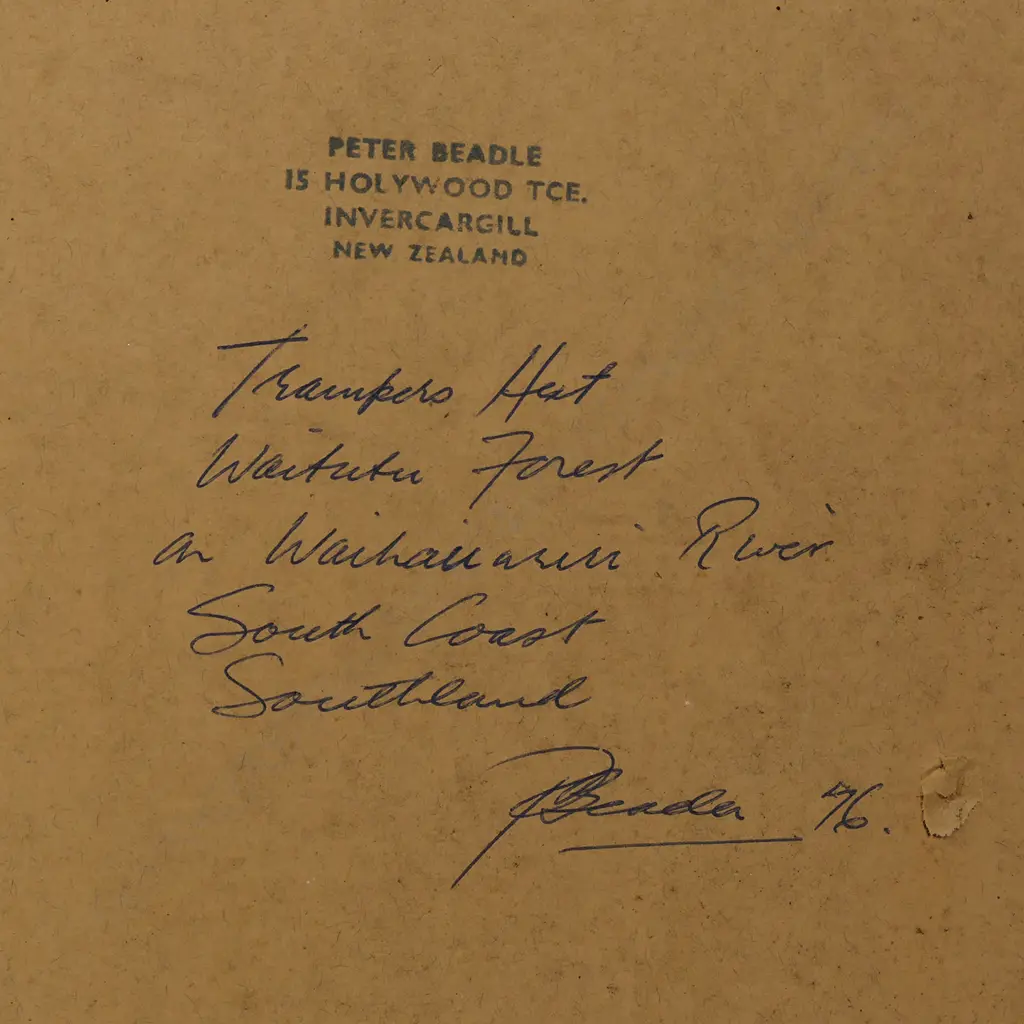 PETER BEADLE
15 HOLYWOOD TCE.
INVERCARGILL
NEW ZEALAND
Trampers Hut
Waitutu Forest
on River
South Coast
Southland
PBeadle 76.